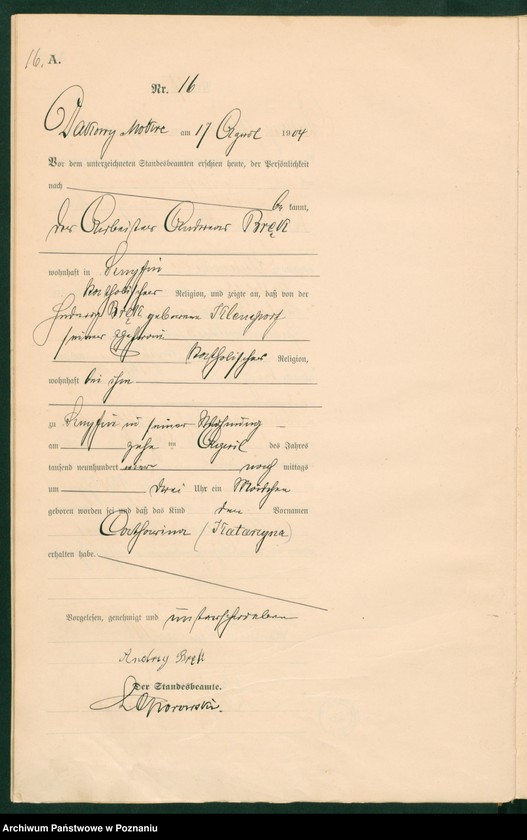 16. A.
Nr. 16
Dakowy Mokre am 17 April 1904
Vor dem unterzeichneten Standesbeamten erschien heute, der Persönlichkeit
nach be kannt,
der Arbeiter Andreas Bręk
wohnhaft in
katholischer Religion, und zeigte an, daß von der
Bręk geborene
seiner Ehefrau
katholischer Religion,
wohnhaft bei ihm
zu in seiner Wohnung
am zehn ten April des Jahres
tausend neunhundert vier nach mittags
um drei Uhr ein Mädchen
geboren worden sei und daß das Kind den Vornamen
Catharina (Katarzyna)
erhalten habe.
Vorgelesen, genehmigt und unterschrieben
Andrzy Bręk
Der Standesbeamte.
Archiwum Państwowe w Poznaniu